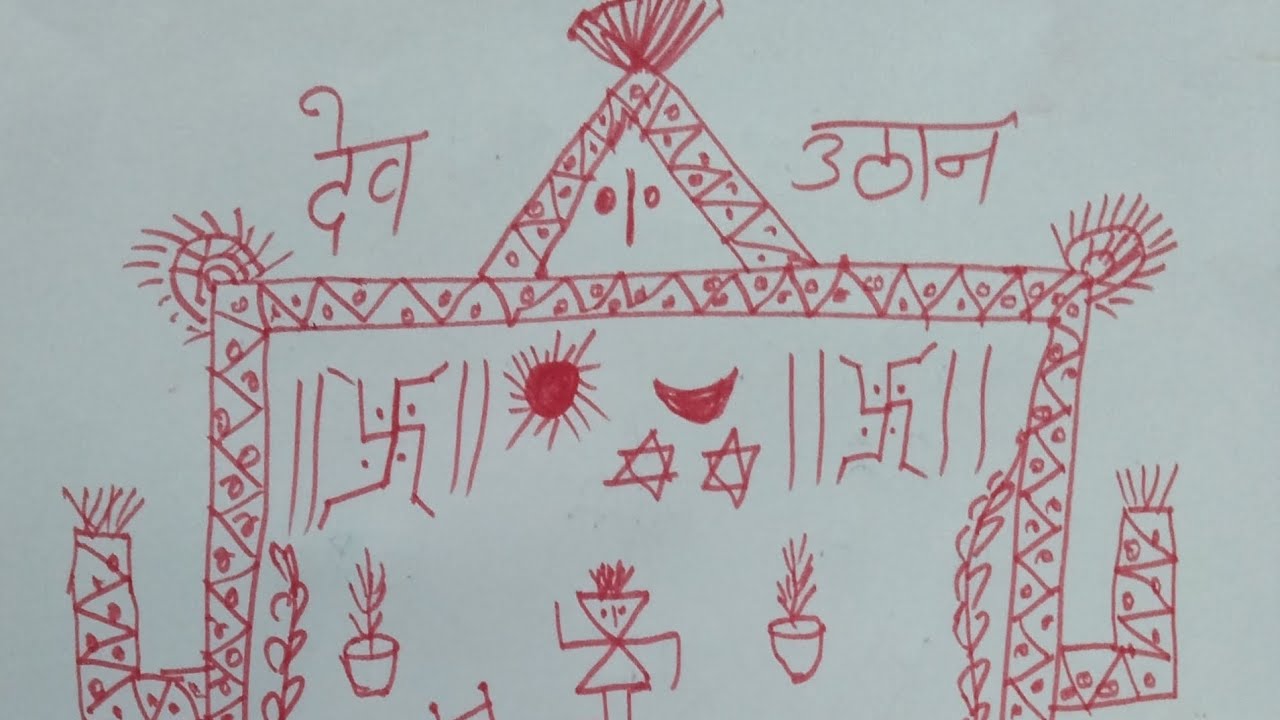 देव उठान